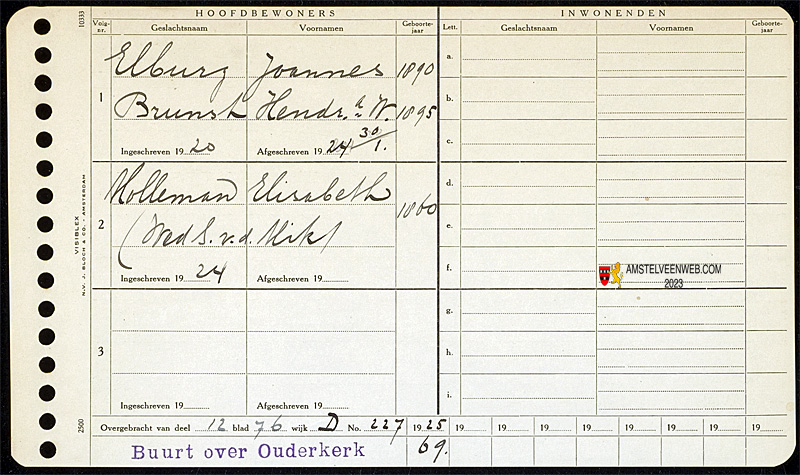 10333
HOOFDBEWONERS
INWONENDEN
Volg-nr.
Geslachtsnaam
Voornamen
Geboorte-jaar
Lett.
Geslachtsnaam
Voornamen
Geboorte-jaar
1
Elburg Joannes 1890
Brunst Hendr.a W. 1895
Ingeschreven 19 20
Afgeschreven 19 24 30/1.
2
Holleman Elisabeth 1860
(Wed S. v. d. Mik)
Ingeschreven 19 24
Afgeschreven 19
3
Ingeschreven 19
Afgeschreven 19
a.
b.
c.
d.
e.
f.
g.
h.
i.
AMSTELVEENWEB.COM
2023
VISIBLEX
N.V. J. BLOCH & CO. - AMSTERDAM
2500
Overgebracht van deel 12 blad 76 wijk D No. 227
1925 19 19 19 19 19 19 19 19
Buurt over Ouderkerk 69.